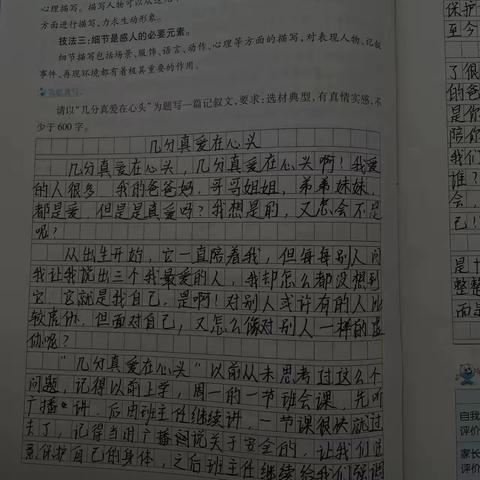 心理描写。描写人物可以从这几
方面进行描写,力求生动形象。
技法三:细节是感人的必要元素。
细节描写包括场景、服饰、语言、动作、心理等方面的描写,对表现人物、记叙
事件、再现环境都有着极其重要的作用。
请以“几分真爱在心头”为题写一篇记叙文,要求:选材典型,有真情实感,不
少于600字。
几分真爱在心头
几分真爱在心头,几分真爱在心头啊!我爱
的人很多,我的爸爸妈,哥哥姐姐,弟弟妹妹,
都是爱,但是是真爱吗?我想是的,又怎会不是
呢?
从出生开始,它一直陪着我,但每每别人问
我让我说出三个我最爱的人,我却怎么都没想到
它,它就是我自己,是啊!对别人或许有的人比
较虚伪,但面对自己,又怎么像对别人一样的虚
伪呢?
“几分真爱在心头”以前从未思考过这么个
问题,记得以前上学,周一的一节班会课,先听
广播讲,后由班主任继续讲,一节课很快就过
去了,记得当时广播词说关于安全的,让我们
保护自己的身体,之后班主任继续给我们强调
保护
至今
了很
的爸
是你
陪你
我们
谁?
会,
己!
是十
整整
而是
自我
评价
家长
评价